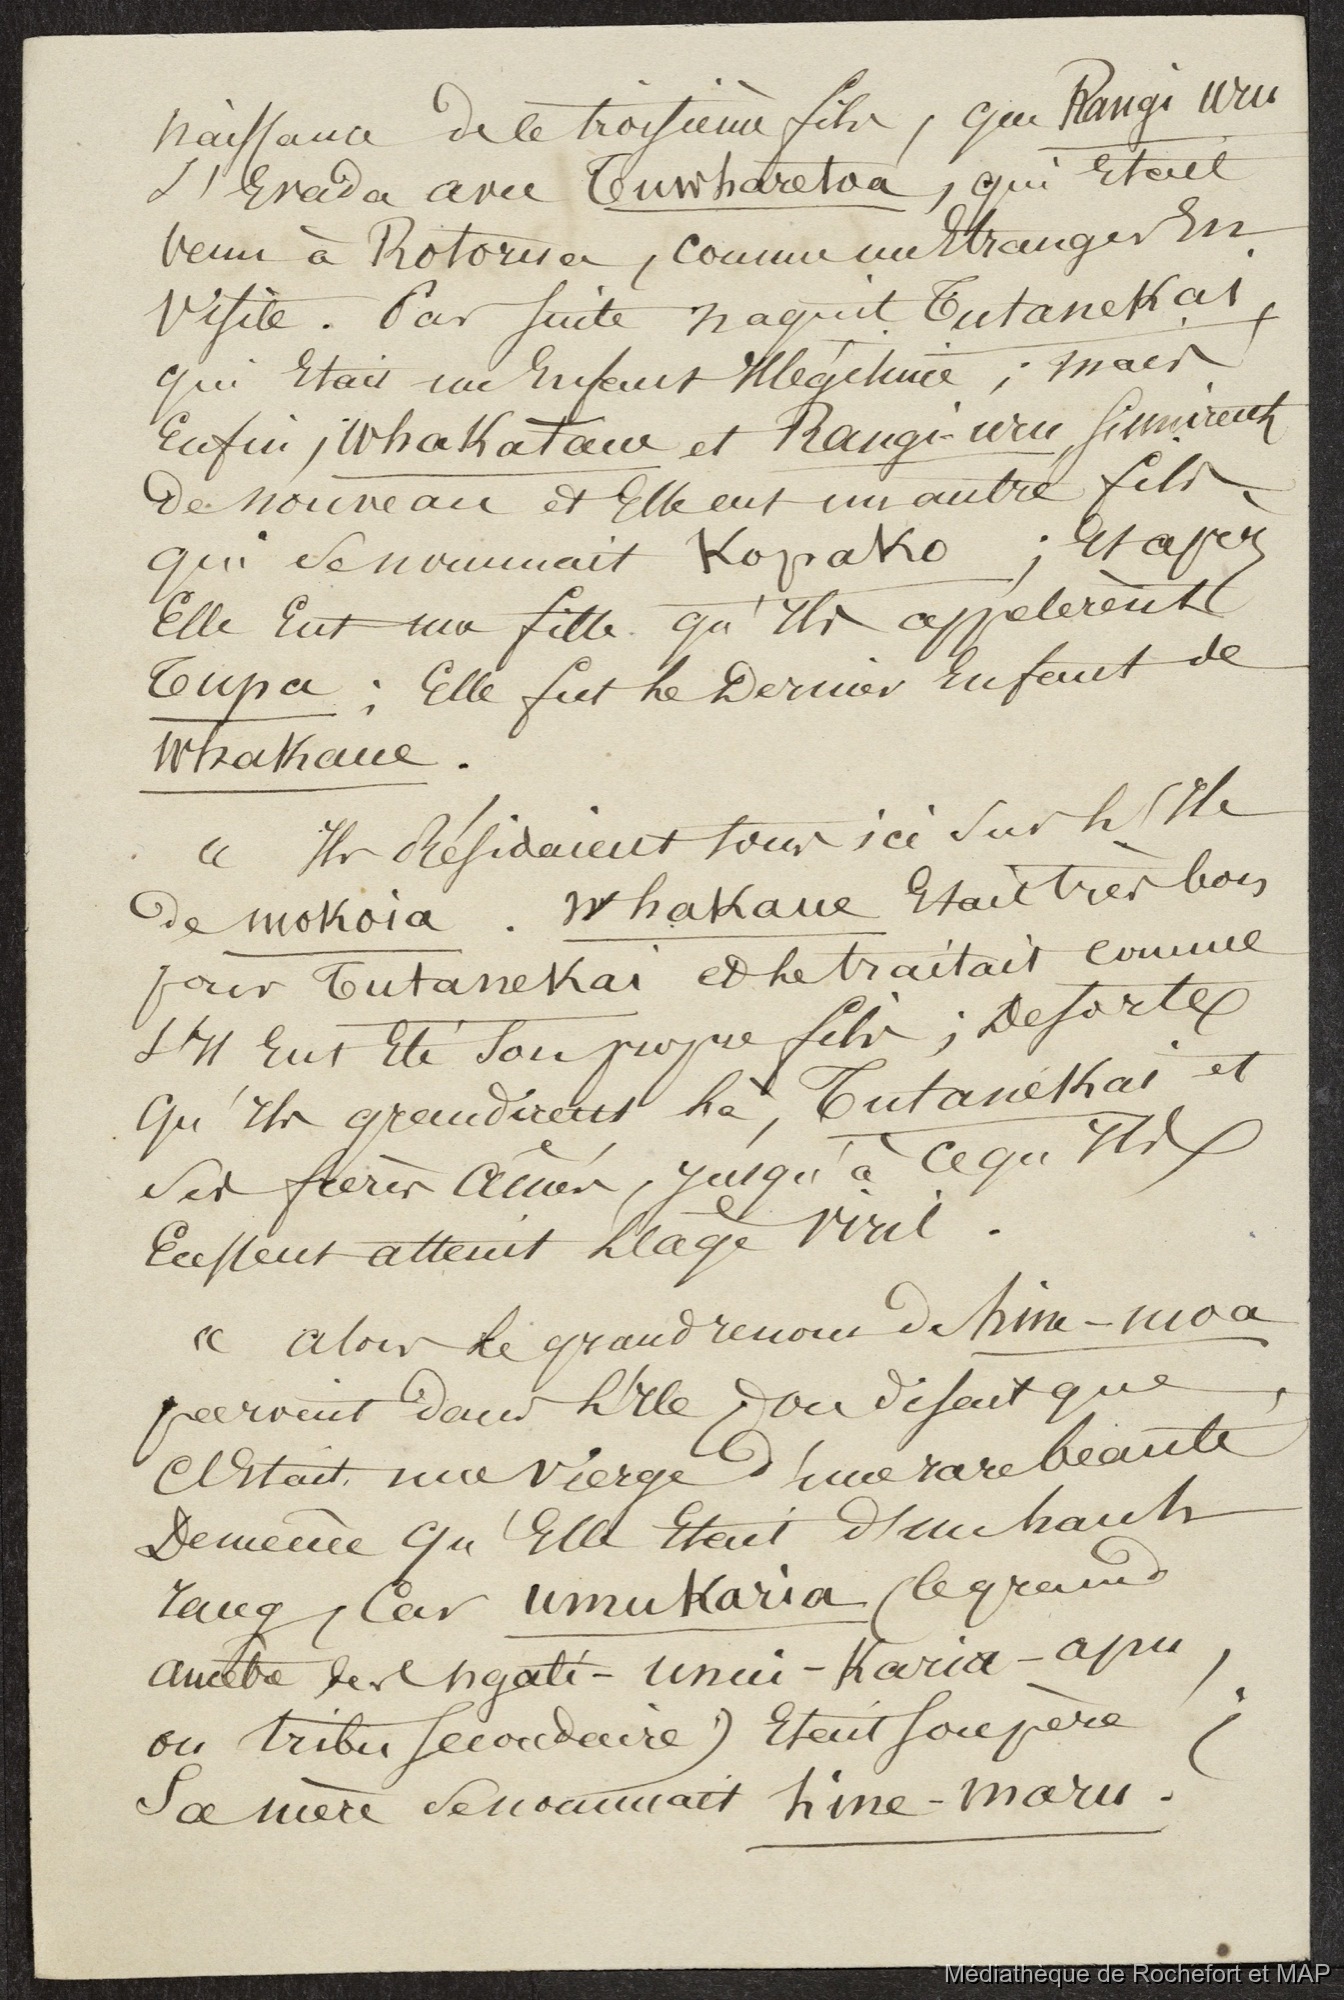 naissance de le troisième fils, que Rangi uru
s'Evada avec Tuwharetoa, qui Etait
venu à Rotorua, comme un Etranger En
Visite. Par suite naquit Tutanekai,
qui Etait un Enfant Illégitime ; mais
Enfin, WhaKataue et Rangi-uru s'unirent
De nouveau et Elle eut un autre fils
qui se nommait KopaKo ; Et après
Elle Eut une fille qu'Ils appelerènt
Tupa ; Elle fut le Dernier Enfant de
WhaKaue.
" Ils Résidaient tous ici sur l'Ile
de mokoia. WhaKaue Etait très bon
pour TutaneKai et le traitait comme
s'Il Eut Eté son propre fils ; De sorte
Qu'Ils grandirent là, TutaneKai et
ses frères aînés, jusqu'à ce qu'Ils
Eussent atteint l'âge Viril.
" alors le grand renom de hine-moa
parvint dans l'Ile, on disait que
c'Etait une Vierge d'une rare beauté
De même qu'Elle Etait d'un haut
rang, Car UmuKaria (le grand
ancêtre des ngati-unui-Karia-apu,
ou tribu secondaire) Etait son père ;
Sa mère se nommait hine-maru.
Médiathèque de Rochefort et MAP